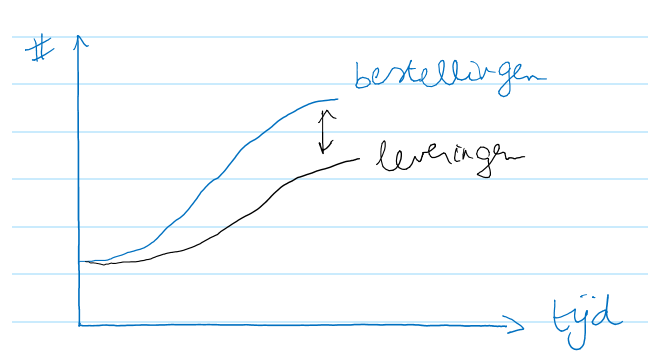 #
bestellingen
leveringen
tijd